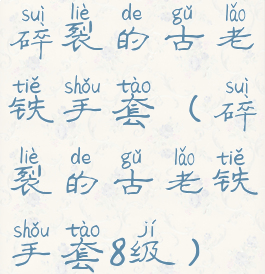 suì liè de gǔ lǎo
碎裂的古老
tiě shǒu tào suì
铁手套(碎
liè de gǔ lǎo tiě
裂的古老铁
shǒu tào jí
手套8级)